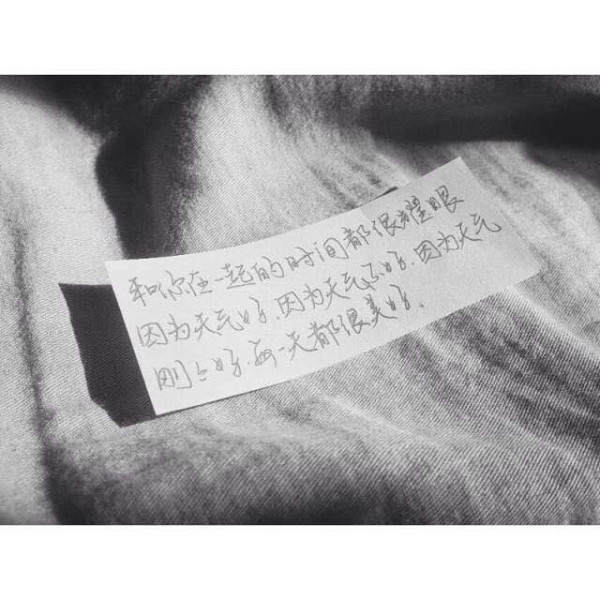 和你在一起的时间都很耀眼
因为天气好.因为天气不好.因为天气
刚刚好.每一天都很美好.